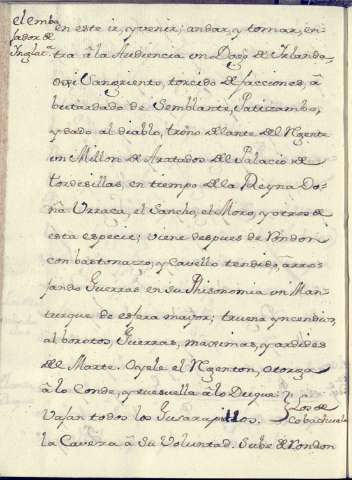 el emba
jador de
Inglatª.
en este ir, y venir; andar, y tornar, en-
tra â la Audiencia un Dagⁿ de Irlanda
Sangriento, torcido de facciones, â
butardado de Semblante, Patizambo,
y dado al diablo, trôno delante del Rgente
un Millon de Aratados del Palacio de
tordesillas, en tiempo de la Reyna Do-
ña Urraca, el Sancho, el Moro, y otros de
esta especie; viene despues de Rondon
con bastonazo, y Cavello tendido, arro-
jando Guerras en su Phisonomia un Man-
turque de esfera mayor; truena yncendios,
alborotos, Guerras, maquinas, y ardides
del Marte. Oyele el Rgenton, otorga
â lo Conde, y resuella â lo Duque: y
Vajan todos los Gusarapillos.
Los de
Cobachuela
la Caveza â su Voluntad. Sube de Rondon